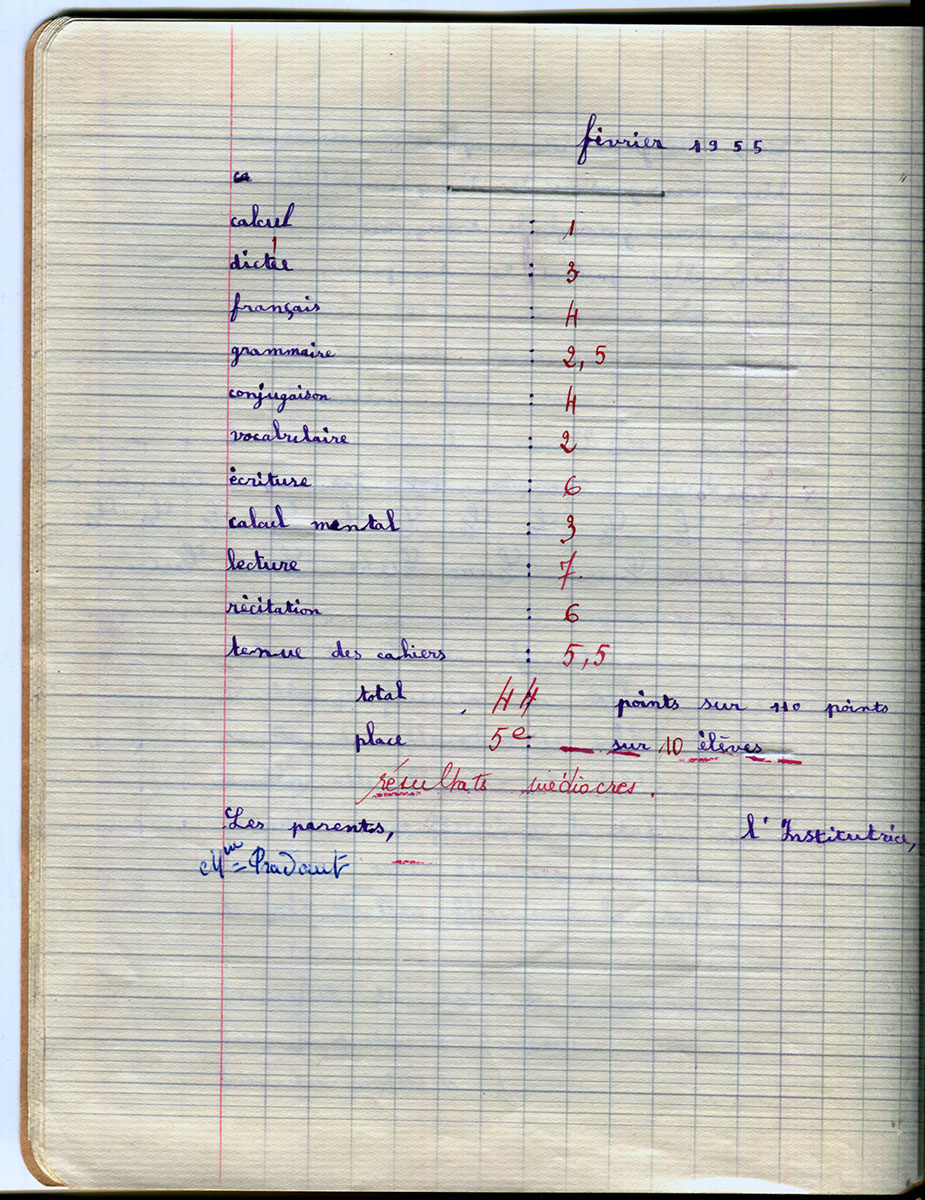 février 1955
ca
calcul : 1
dictée : 3
français : 4
grammaire : 2,5
conjugaison : 4
vocabulaire : 2
écriture : 6
calcul mental : 3
lecture : 7
récitation : 6
tenue des cahiers : 5,5
total 44 points sur 110 points
place 5e : sur 10 élèves
résultats médiocres.
Les parents, l'Institutrice,
Mme